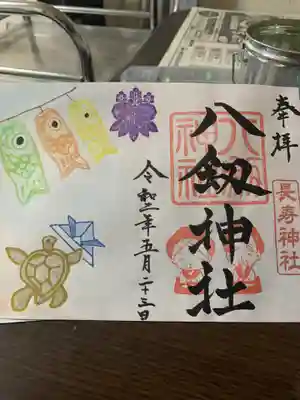 奉拝
長寿神社
八劔神社
八剱神社
令和二年五月二十三日